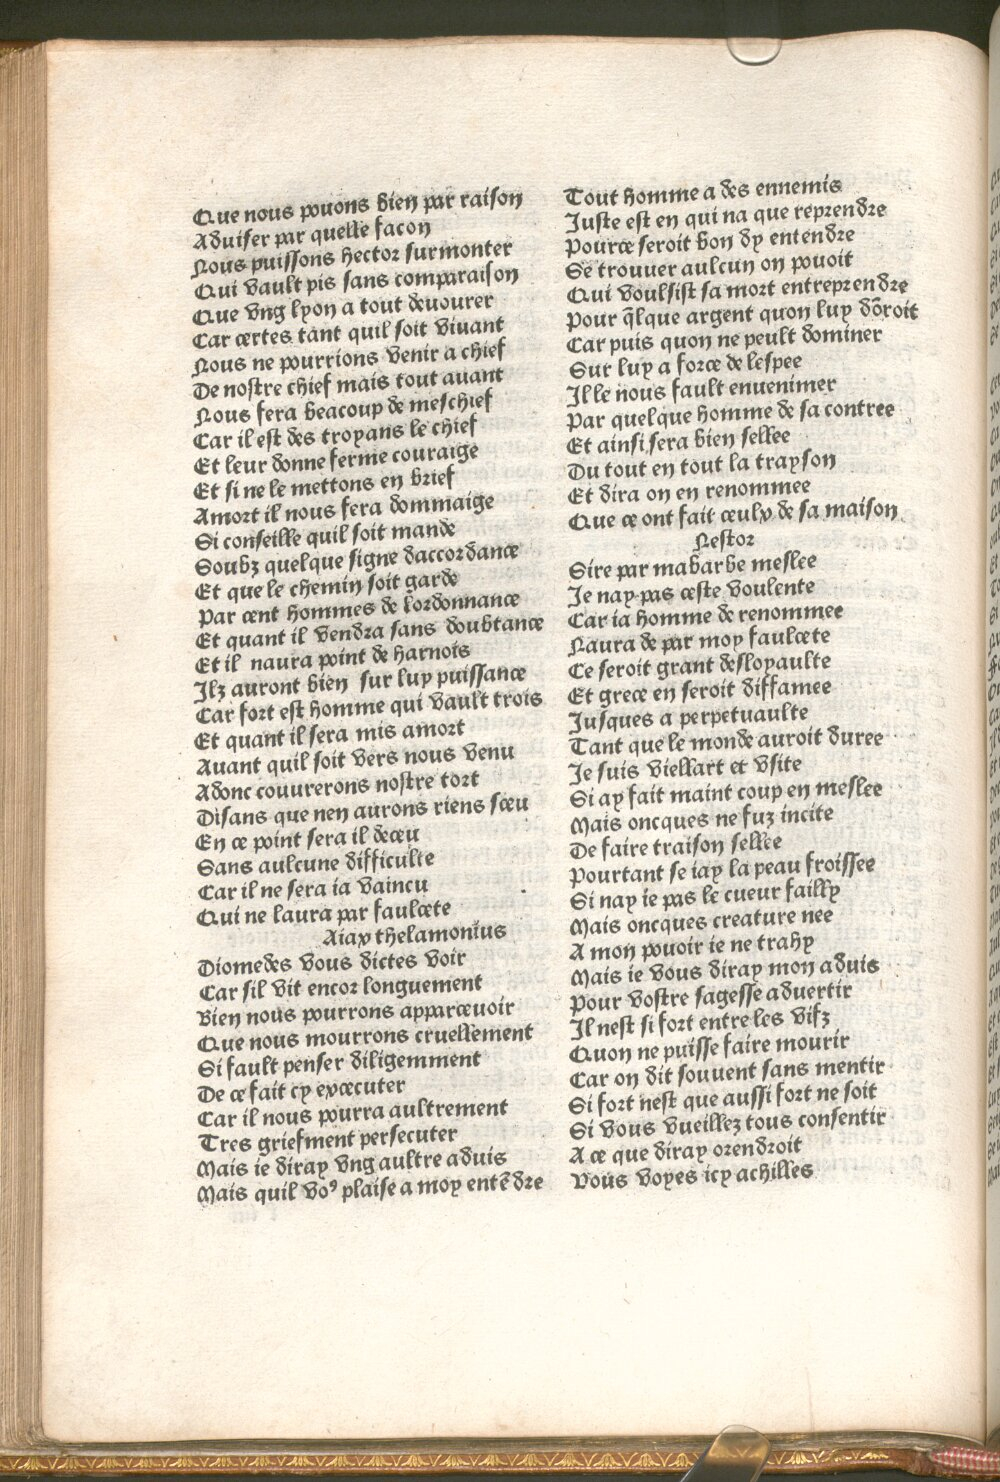 Que nous pouons bien par raison
Aduiser par quelle facon
Nous puissons hector surmonter
Qui vault pis sans comparaison
Que vng lyon a tout deuourer
Car certes tant quil soit viuant
Nous ne pourrions venir a chief
De nostre chief mais tout auant
Nous fera beacoup de meschief
Car il est des troyans le chief
Et leur donne ferme couraige
Et si ne le mettons en brief
Amort il nous fera dommaige
Si conseille quil soit mande
Soubz quelque signe daccordance
Et que le chemin soit garde
Par cent hommes de lordonnance
Et quant il vendra sans doubtance
Et il naura point de harnois
Ilz auront bien sur luy puissance
Car fort est homme qui vault trois
Et quant il sera mis amort
Auant quil soit vers nous venu
Adonc couurerons nostre tort
Disans que nen aurons riens sceu
En ce point sera il deceu
Sans aulcune difficulte
Car il ne sera ia vaincu
Qui ne laura par faulcete
Aiax thelamonius
Diomedes vous dictes voir
Car sil vit encor longuement
Bien nous pourrons apparceuoir
Que nous mourrons cruellement
Si fault penser diligemment
De ce fait cy execcuter
Car il nous pourra aultrement
Tres griefment persecuter
Mais ie diray vng aultre aduis
Mais quil voꝰ plaise a moy entẽdre
Tout homme a des ennemis
Juste est en qui na que reprendre
Pource seroit bon dy entendre
Se trouuer aulcun on pouoit
Qui voulsist sa mort entreprendre
Pour q̃lque argent quon luy dõroit
Car puis quon ne peult dominer
Sur luy a force de lespee
Il le nous fault enuenimer
Par quelque homme de sa contree
Et ainsi sera bien sellee
Du tout en tout la trayson
Et dira on en renommee
Que ce ont fait ceulx de sa maison
Nestor
Sire par mabarbe meslee
Je nay pas ceste voulente
Car ia homme de renommee
Naura de par moy faulcete
Ce seroit grant desloyaulte
Et grece en seroit diffamee
Jusques a perpetuaulte
Tant que le monde auroit duree
Je suis viellart et vsite
Si ay fait maint coup en meslee
Mais oncques ne fuz incite
De faire traison sellee
Pourtant se iay la peau froissee
Si nay ie pas le cueur failly
Mais oncques creature nee
A mon pouoir ie ne trahy
Mais ie vous diray mon aduis
Pour vostre sagesse aduertir
Il nest si fort entre les vifz
Quon ne puisse faire mourir
Car on dit souuent sans mentir
Si fort nest que aussi fort ne soit
Si vous vueillez tous consentir
A ce que diray orendroit
Vous voyes icy achilles